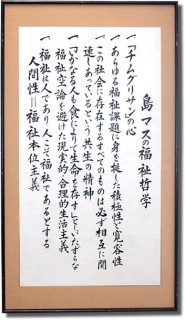 島マスの福祉哲学
一「チムグリサン」の心
一 あらゆる福祉課題に身を挺した積極性と寛容性
一 この社会に存在するすべてのものは必ず相互に関
連しあっているという共生の精神
一「いかなる人も食によりて生命を存す」としいたずらな
福祉空論を避けた現実的・合理的生活主義
一 福祉は人であり人こそ福祉であるとする
人間性=福祉本位主義